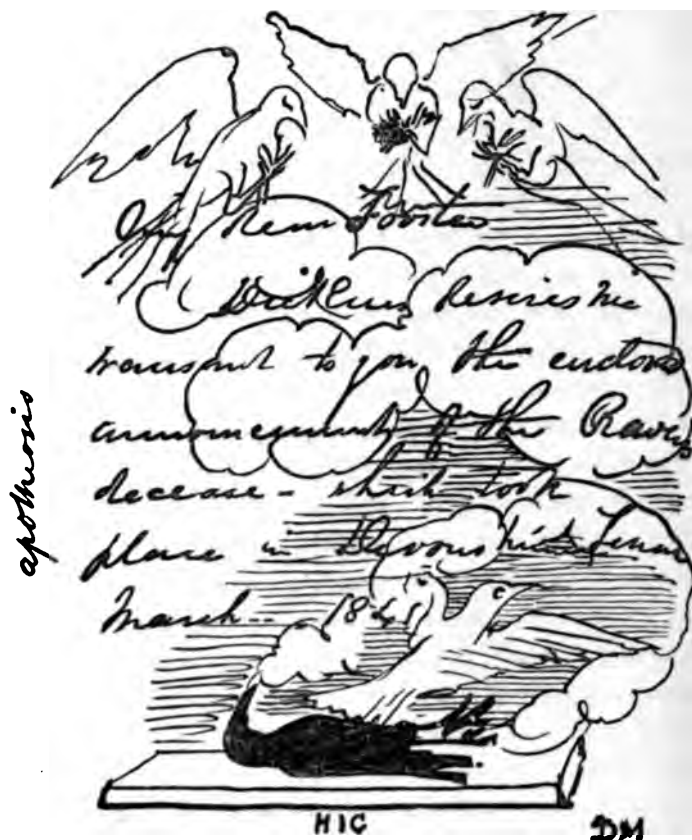 My dear Forster
Dickens desires me
transmit to you the enclosed
announcement of the Raven's
decease - which took
place in Devonshire Terrace
March - 184
apotheosis
HIC
DM